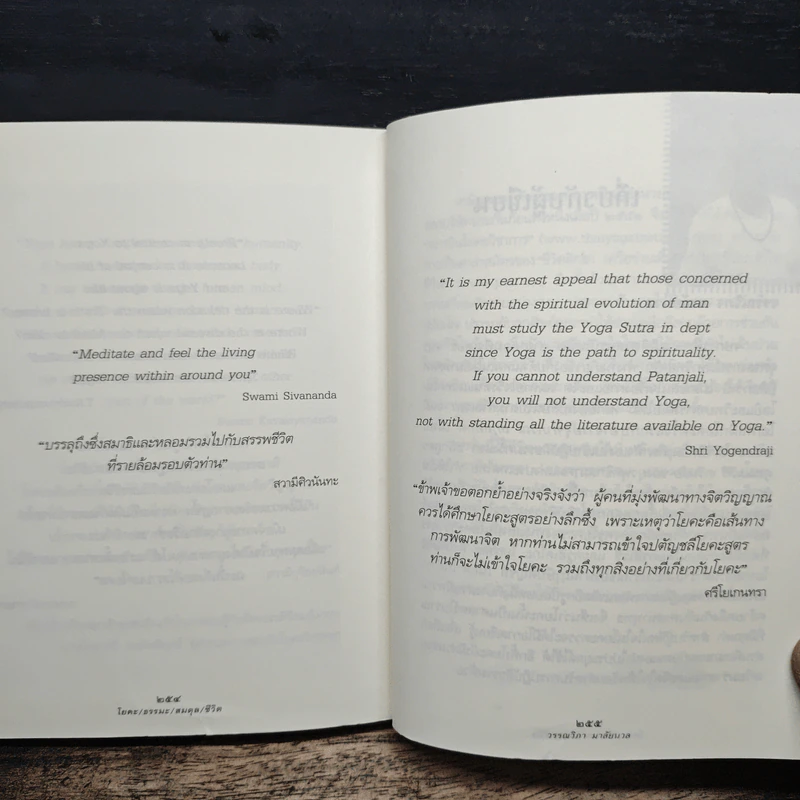 “Meditate and feel the living
presence within around you”
Swami Sivananda
“บรรลุถึงซึ่งสมาธิและหลอมรวมไปกับสรรพชีวิต
ที่รายล้อมรอบตัวท่าน”
สวามีศิวนันทะ
๒๕๔
โยคะ/ธรรมะ/สมดุล/ชีวิต
เกี่ยวกับผู้เขียน
“It is my earnest appeal that those concerned
with the spiritual evolution of man
must study the Yoga Sutra in dept
since Yoga is the path to spirituality.
If you cannot understand Patanjali,
you will not understand Yoga,
not with standing all the literature available on Yoga.”
Shri Yogendraji
“ข้าพเจ้าขอตอกย้ำอย่างจริงจังว่า ผู้คนที่มุ่งพัฒนาทางจิตวิญญาณ
ควรได้ศึกษาโยคะสูตรอย่างลึกซึ้ง เพราะเหตุว่าโยคะคือเส้นทาง
การพัฒนาจิต หากท่านไม่สามารถเข้าใจปตัญชลีโยคะสูตร
ท่านก็จะไม่เข้าใจโยคะ รวมถึงทุกสิ่งอย่างที่เกี่ยวกับโยคะ”
ศรีโยเกนทรา
๒๕๕
วรรณวิภา มาลัยนวล